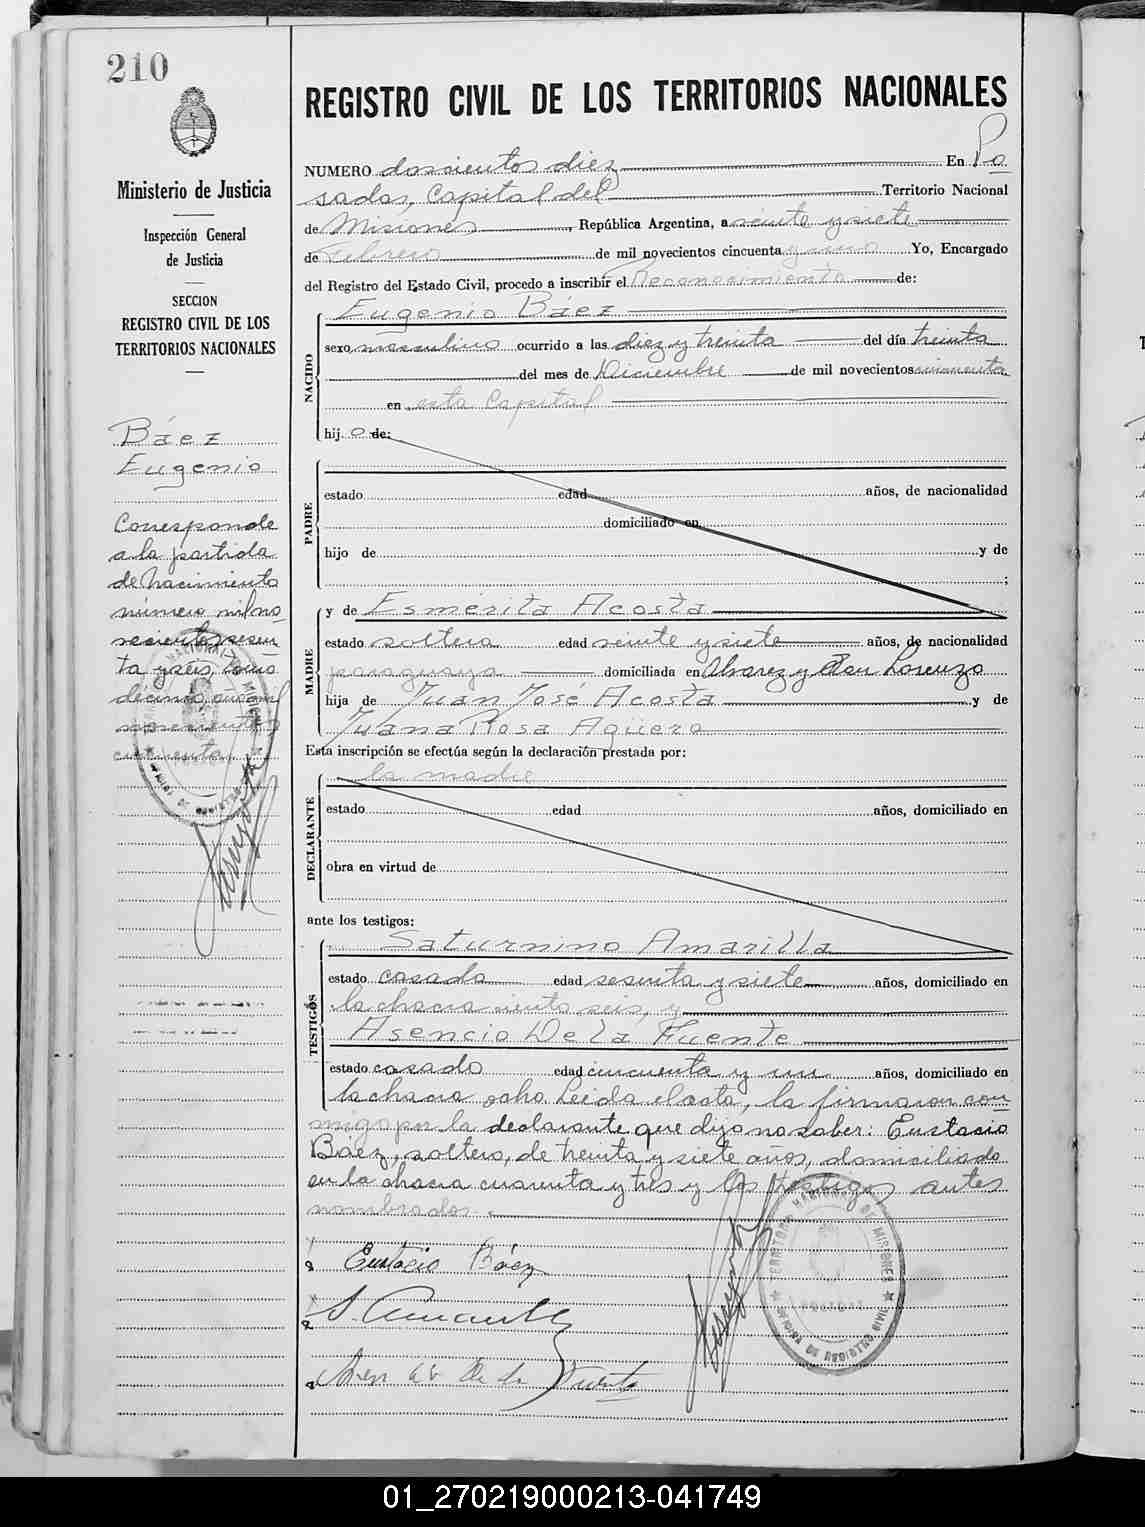 210
Ministerio de Justicia
Inspección General
de Justicia
SECCION
REGISTRO CIVIL DE LOS
TERRITORIOS NACIONALES
Báez
Eugenio
Corresponde
a la partida
de nacimiento
número mil no
vecientos sesen
ta y seis, tomo
décimo, año mil
novecientos
cincuenta
REGISTRO CIVIL DE LOS TERRITORIOS NACIONALES
NUMERO doscientos diez En Po
sadas, Capital del Territorio Nacional
de Misiones, República Argentina, a veinte y siete
de Febrero de mil novecientos cincuenta y uno Yo, Encargado
del Registro del Estado Civil, procedo a inscribir el Reconocimiento de:
NACIDO
Eugenio Báez
sexo masculino ocurrido a las diez y treinta del día treinta
del mes de Diciembre de mil novecientos cincuenta
en esta Capital
hijo de:
PADRE
estado edad años, de nacionalidad
domiciliado en
hijo de y de
;
MADRE
y de Esmérita Acosta
estado soltera edad veinte y siete años, de nacionalidad
paraguaya domiciliada en Alvarez y San Lorenzo
hija de Juan José Acosta y de
Juana Rosa Agüero
Esta inscripción se efectúa según la declaración prestada por:
DECLARANTE
la madre
estado edad años, domiciliado en
obra en virtud de
ante los testigos:
TESTIGOS
Saturnino Amarilla
estado casado edad sesenta y siete años, domiciliado en
la chacra ciento seis, y
Asencio De La Fuente
estado casado edad cincuenta y un años, domiciliado en
la chacra ocho. Leida el acta, la firmaron con
migo por la declarante que dijo no saber: Eustacio
Báez, soltero, de treinta y siete años, domiciliado
en la chacra cuarenta y tres y los testigos antes
nombrados.
Eustacio Báez
TERRITORIO NACIONAL DE MISIONES
OFICINA DE REGISTRO CIVIL
01_270219000213-041749